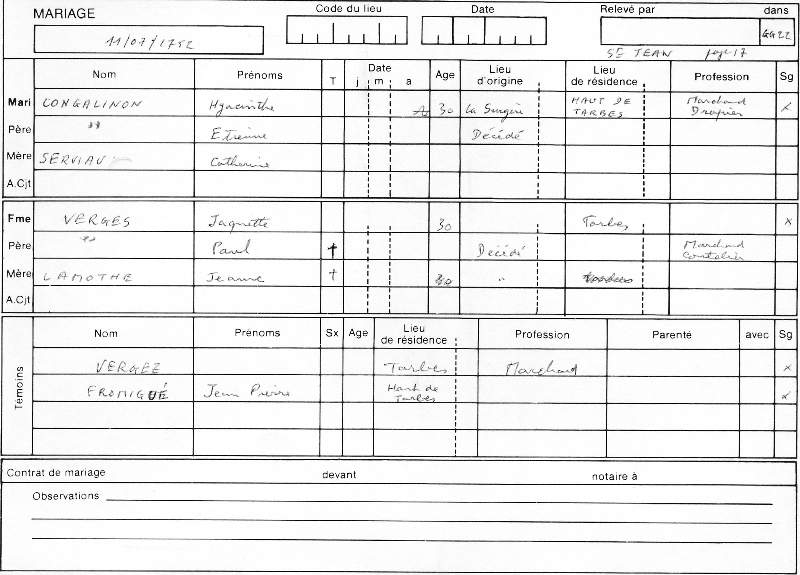 MARIAGE Code du lieu Date Relevé par dans
11/07/1752 GG22
ST JEAN page 17
Nom Prénoms T Date Age Lieu d'origine Lieu de résidence Profession Sg
j m a
Mari CONGALINON Hyacinthe 30 HAUT DE TARBES Marchand Drapier x
Père " Etienne Décédé
Mère SERVIAU Catherine
A.Cjt
Fme VERGES Jaquette 30 Tarbes x
Père " Paul † Décédé Marchand
Mère LAMOTHE Jeanne † "
A.Cjt
Témoins
Nom Prénoms Sx Age Lieu de résidence Profession Parenté avec Sg
VERGEZ Tarbes Marchand x
FROMIGUÉ Jean Pierre Haut de Tarbes x
Contrat de mariage devant notaire à
Observations